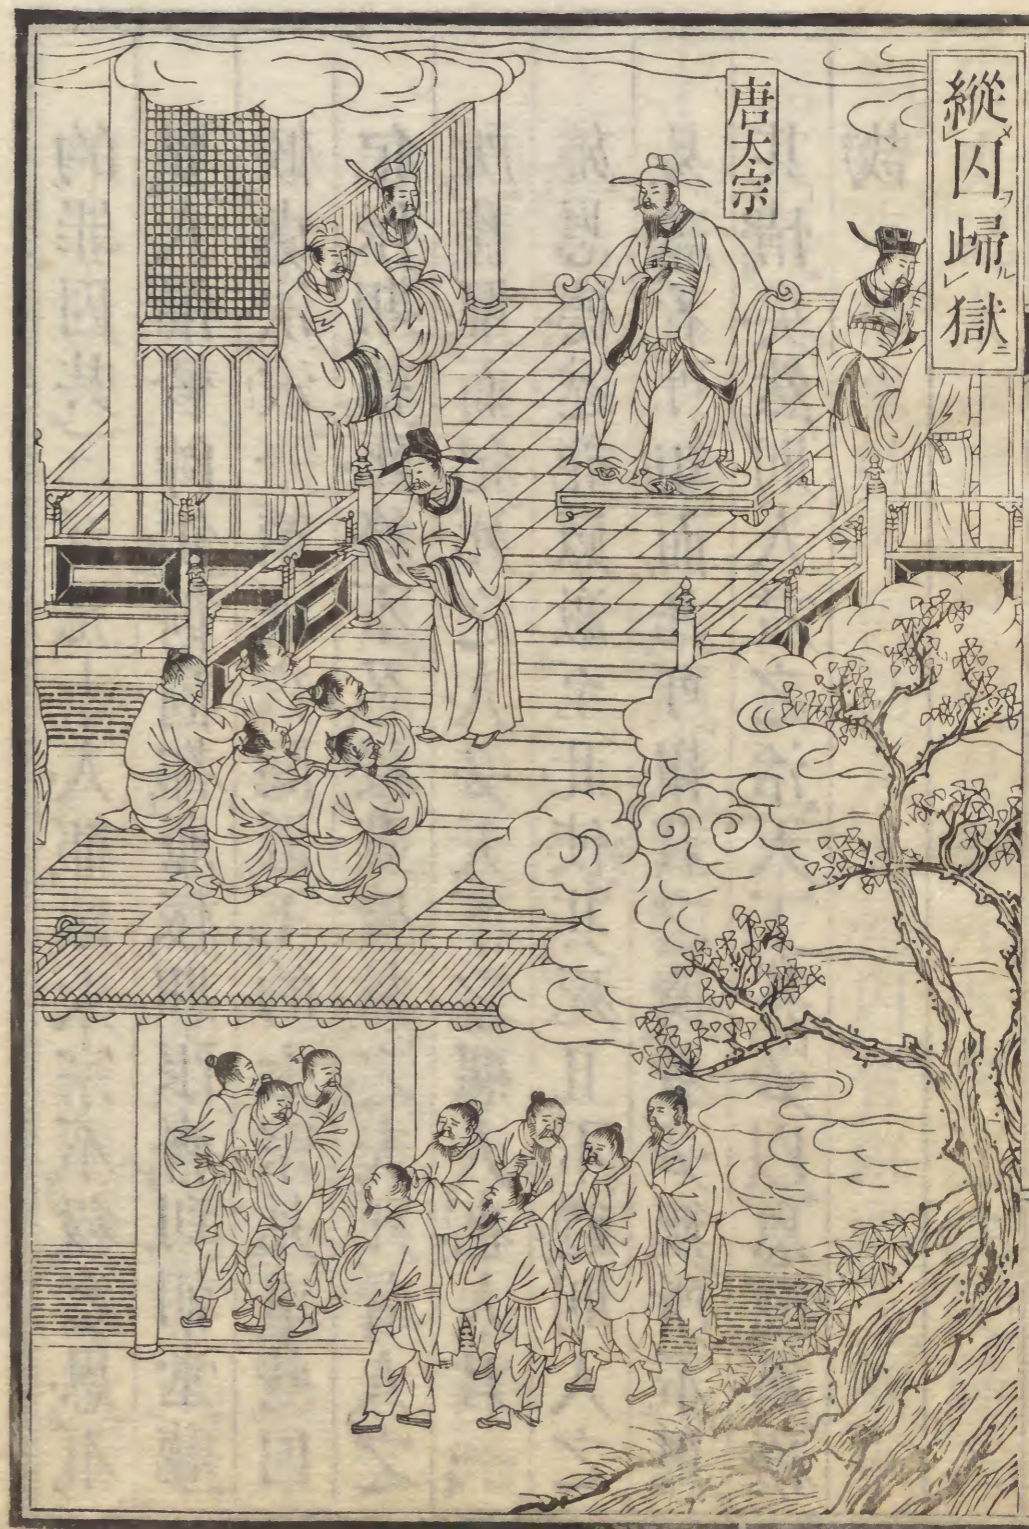 縱囚歸獄
唐太宗